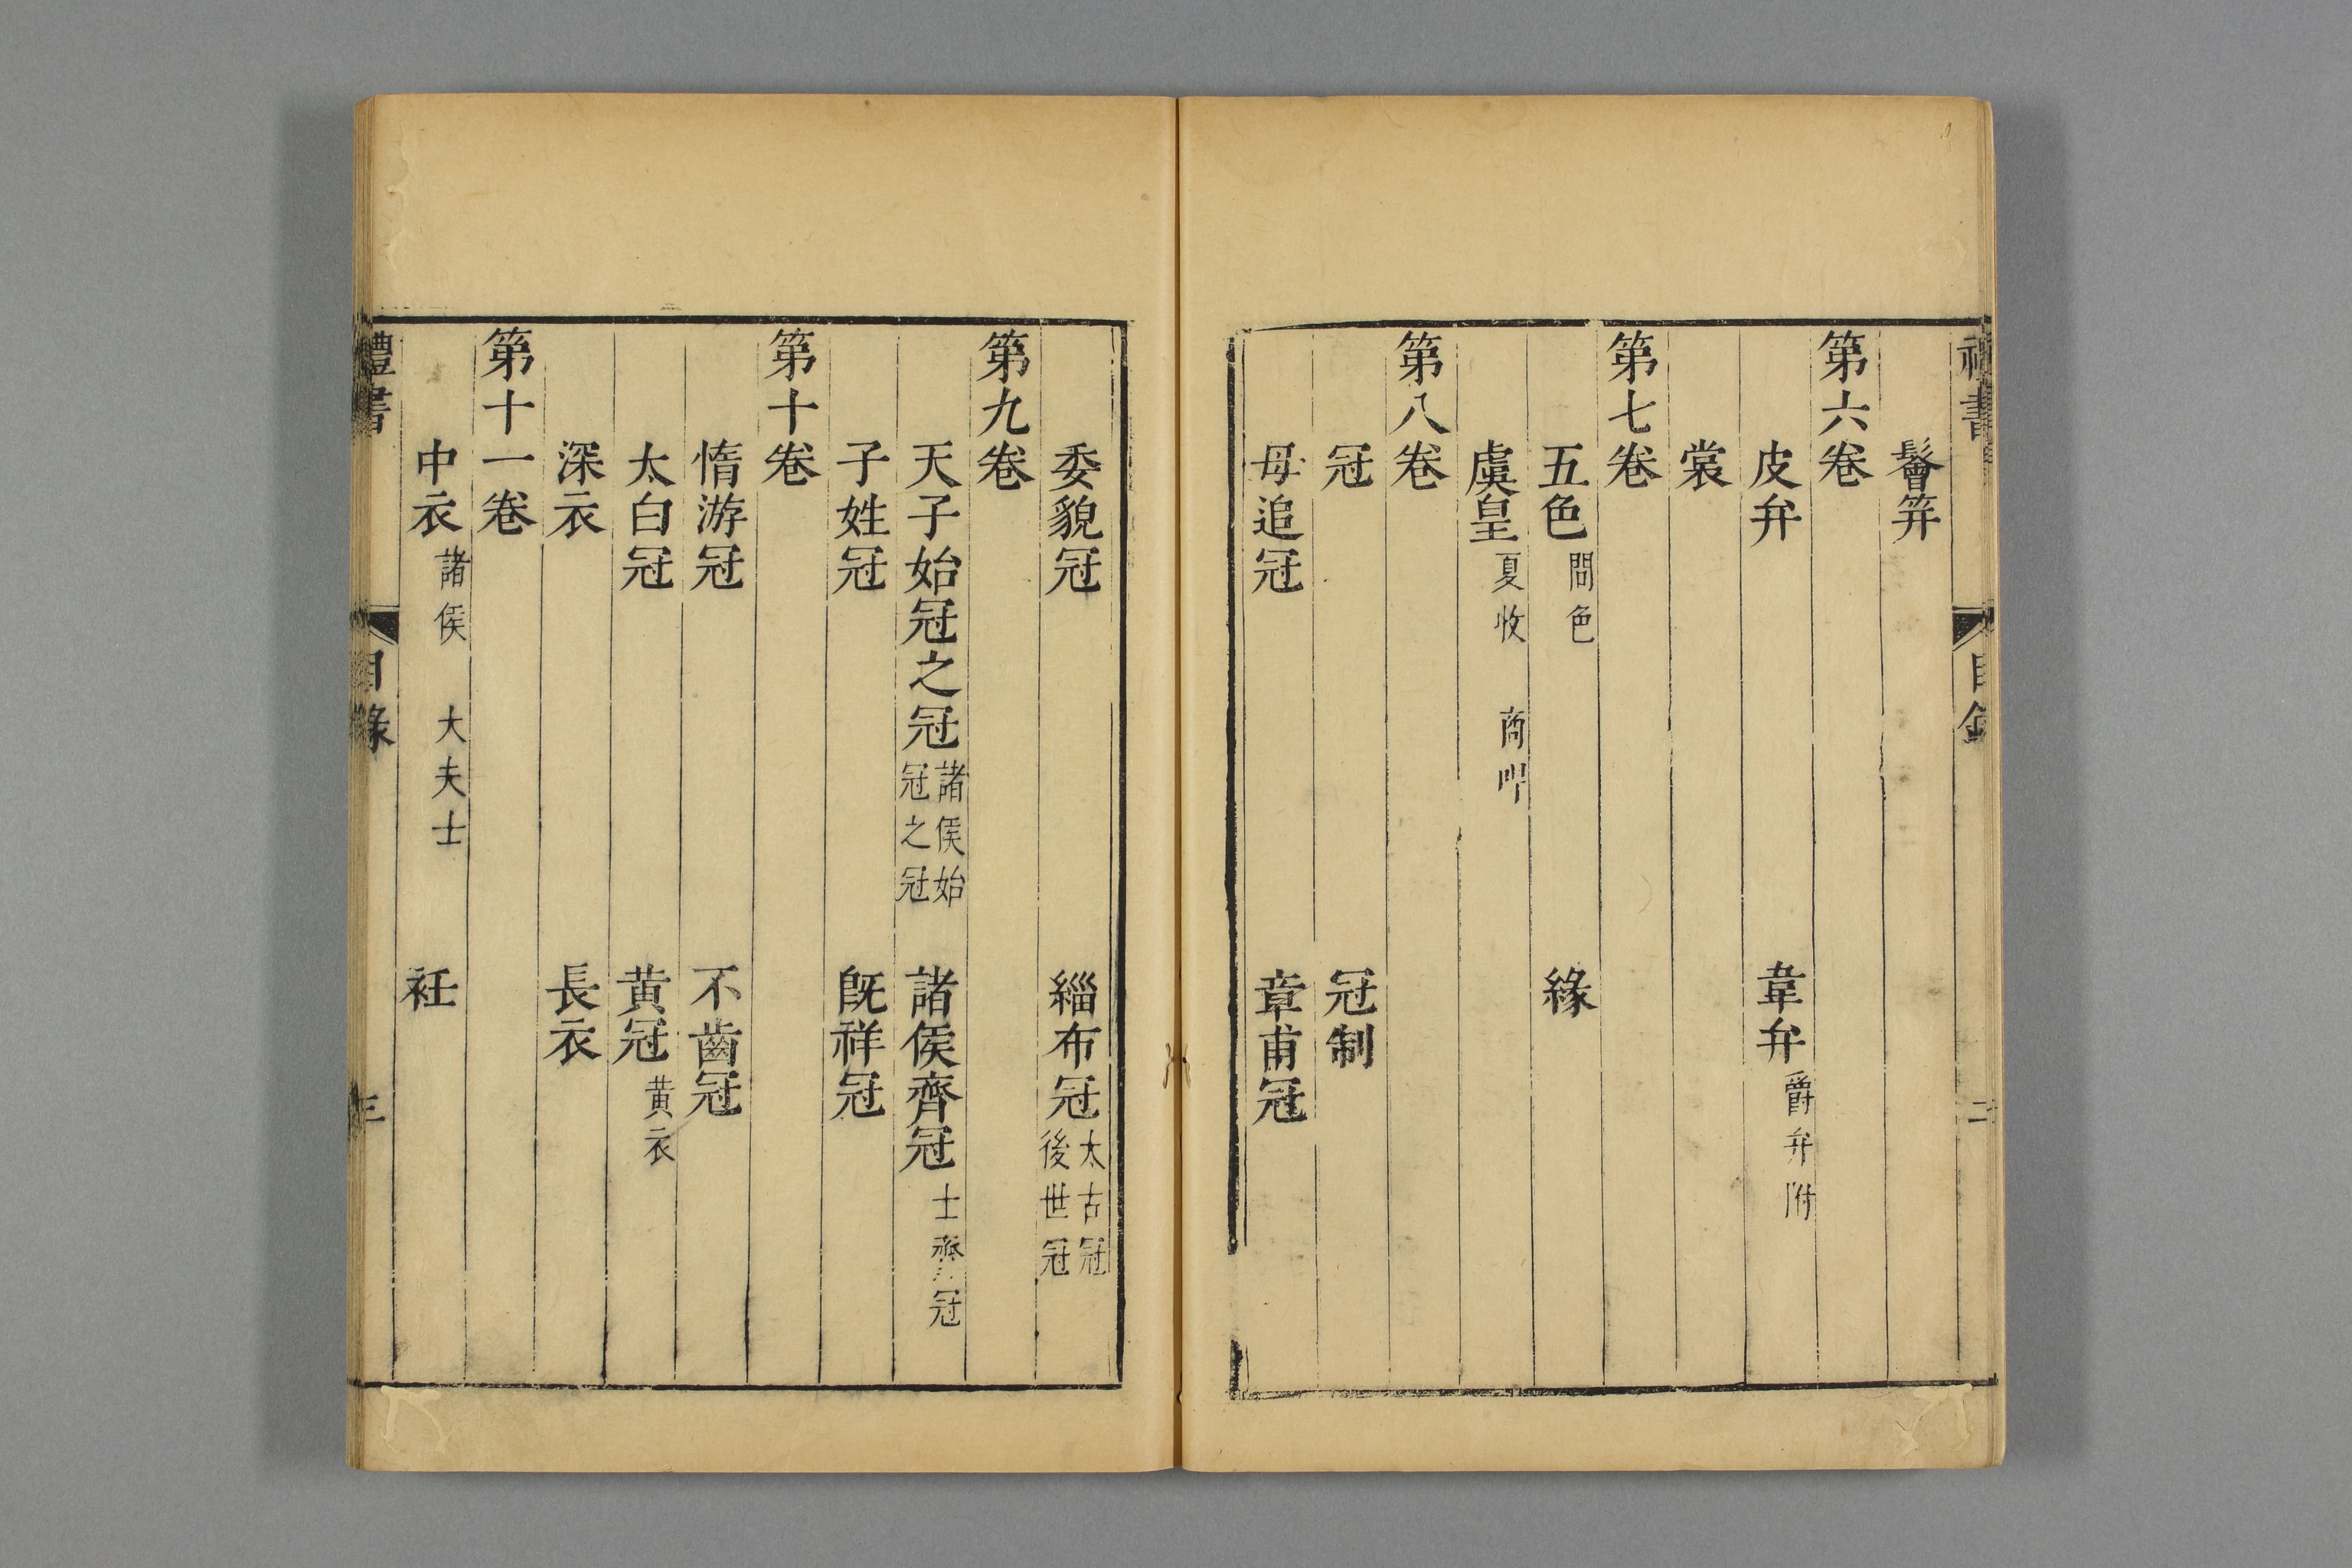 禮書 目錄 二
鬠笄
第六卷
皮弁 韋弁 爵弁附
裳
第七卷
五色 間色 緣
虞皇 夏收 商冔
第八卷
冠 冠制
毋追冠 章甫冠
委貌冠 緇布冠 太古冠 後世冠
第九卷
天子始冠之冠 諸侯始冠之冠 諸侯齊冠 士齊冠
子姓冠 旣祥冠
第十卷
惰游冠 不齒冠
太白冠 黃冠 黃衣
深衣 長衣
第十一卷
中衣 諸侯 大夫士 衽
禮書 目錄 三